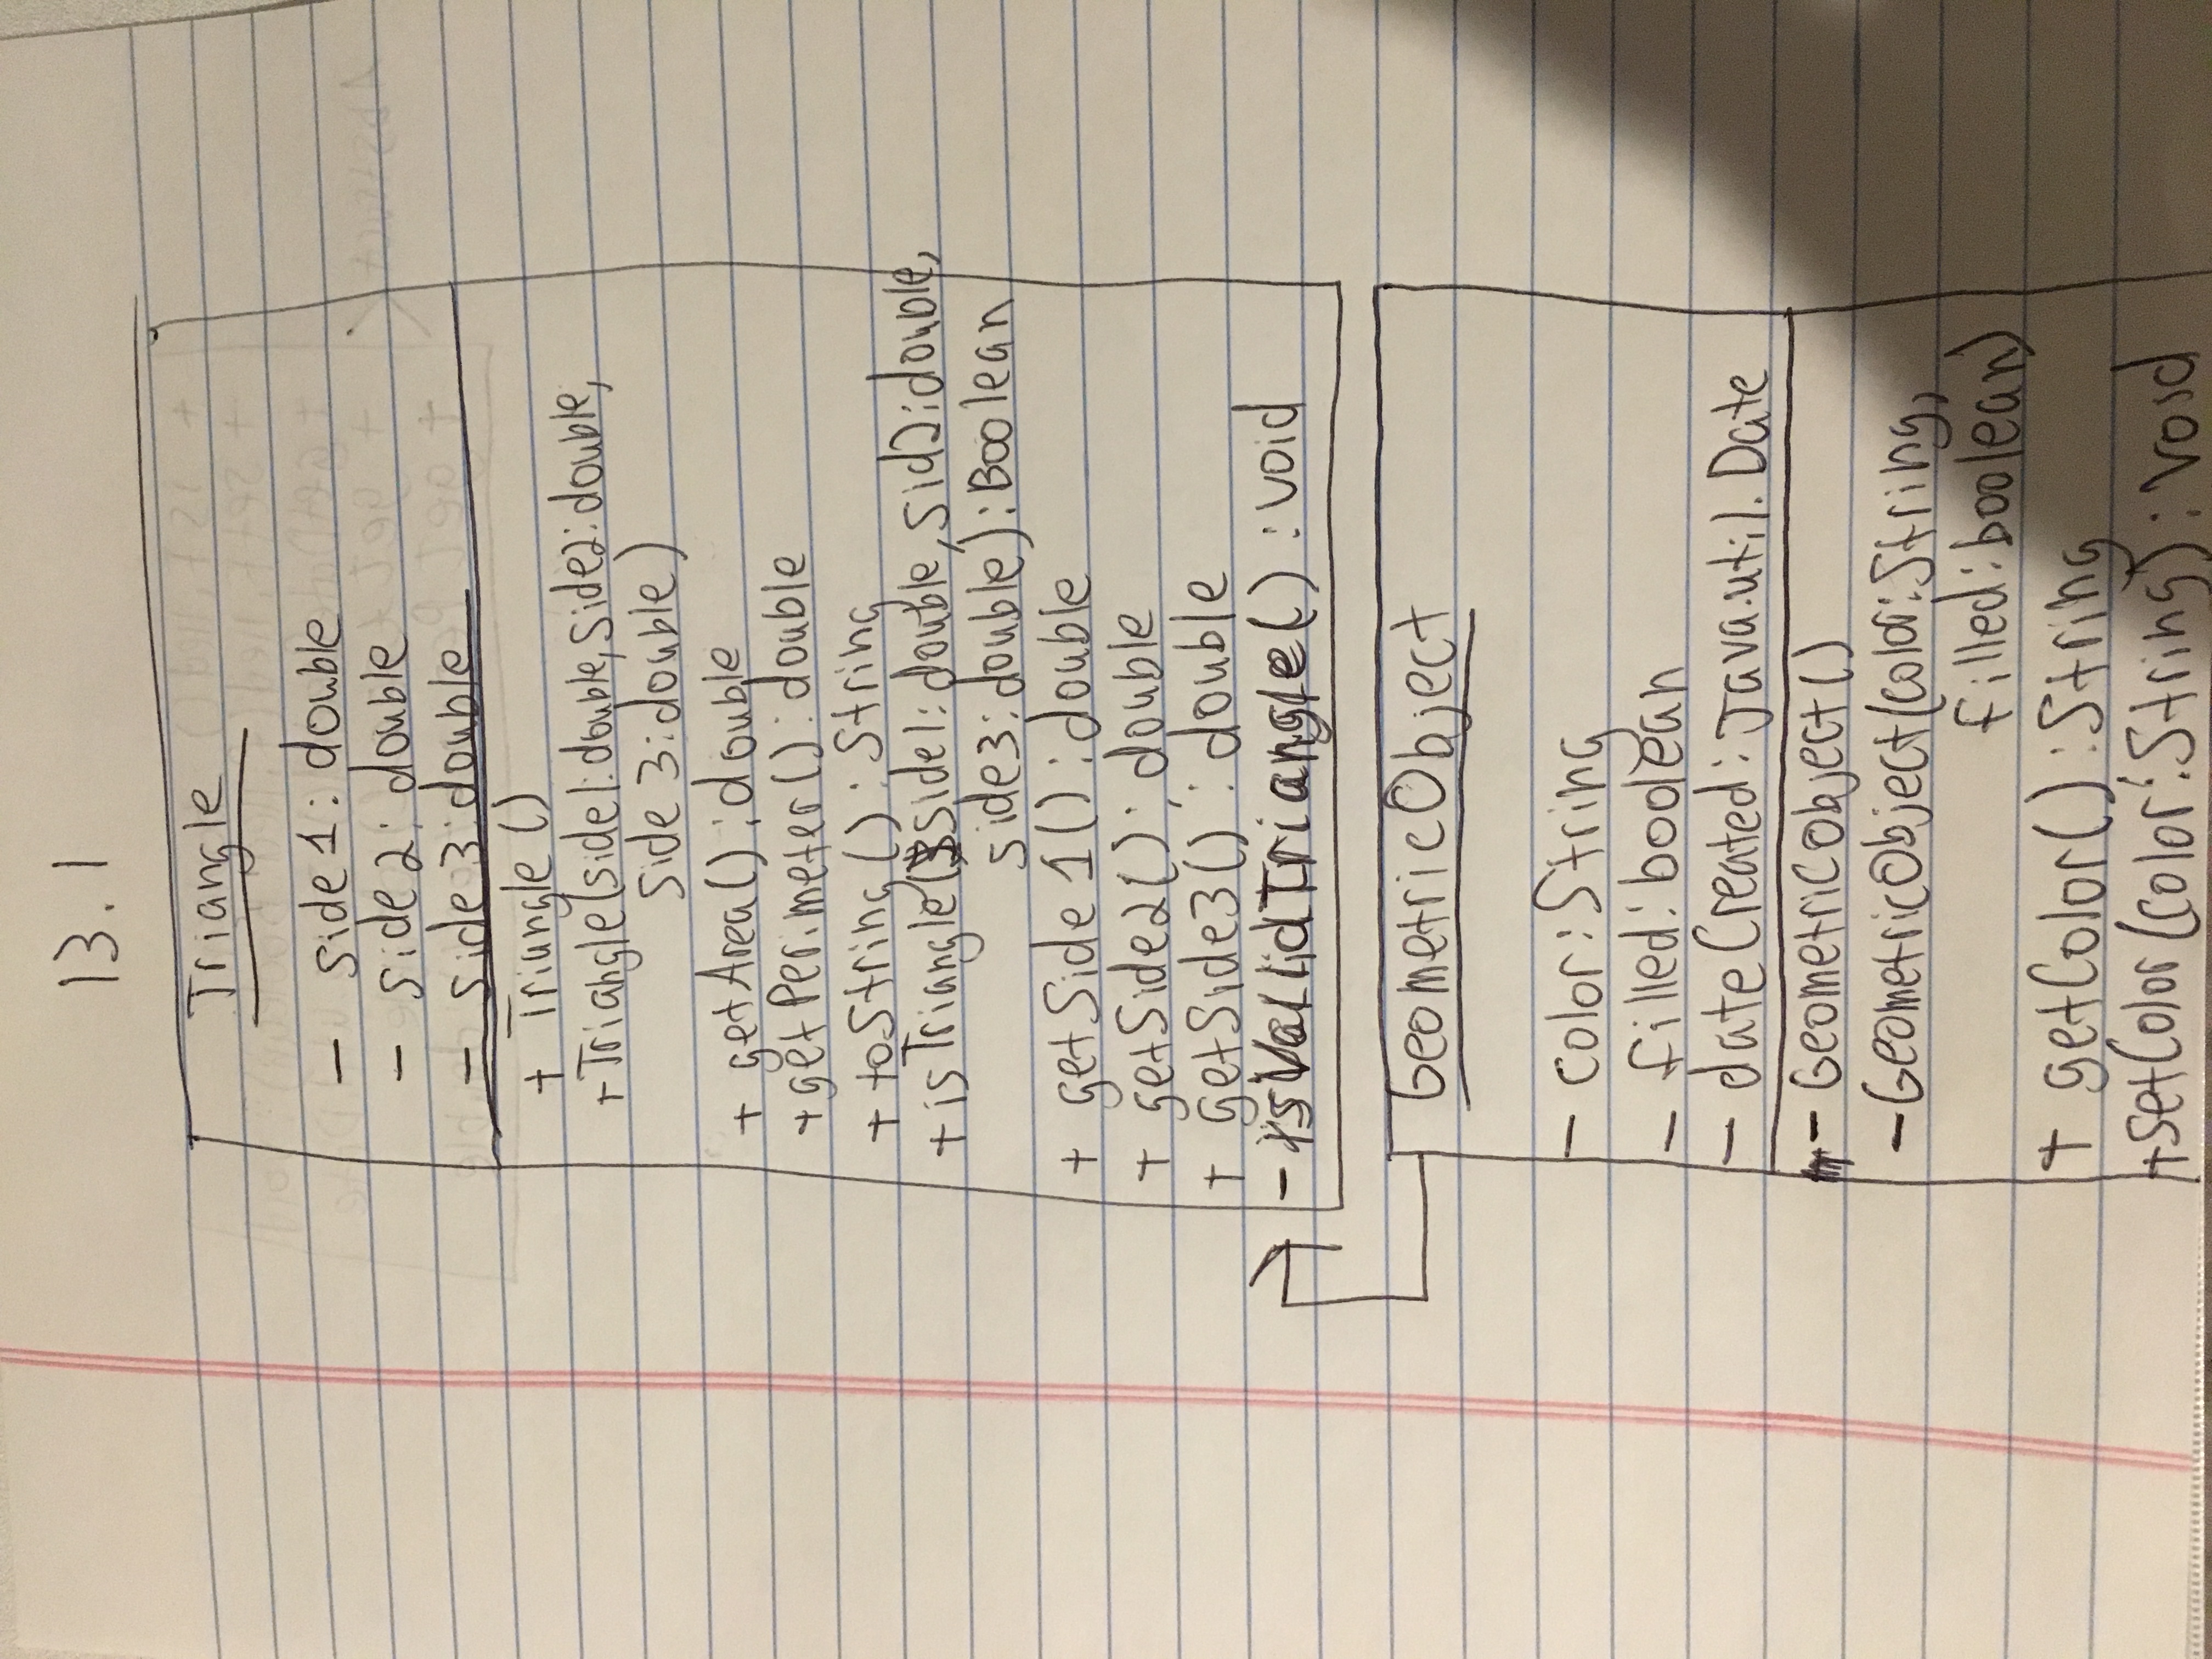 13.1
Triangle
- side1: double
- side2: double
- side3: double
+ Triangle()
+Triangle(side1: double, side2: double,
side3: double)
+ getArea(): double
+getPerimeter(): double
+ toString(): String
+ isTriangle(side1: double, sid2: double,
side3: double): Boolean
+ getSide1(): double
+ getSide2(): double
+ getSide3(): double
- isValidTriangle(): void
GeometricObject
- color: String
- filled: boolean
- dateCreated: java.util.Date
- GeometricObject()
-GeometricObject(color: String,
filled: boolean)
+ getColor(): String
+setColor(color: String): void